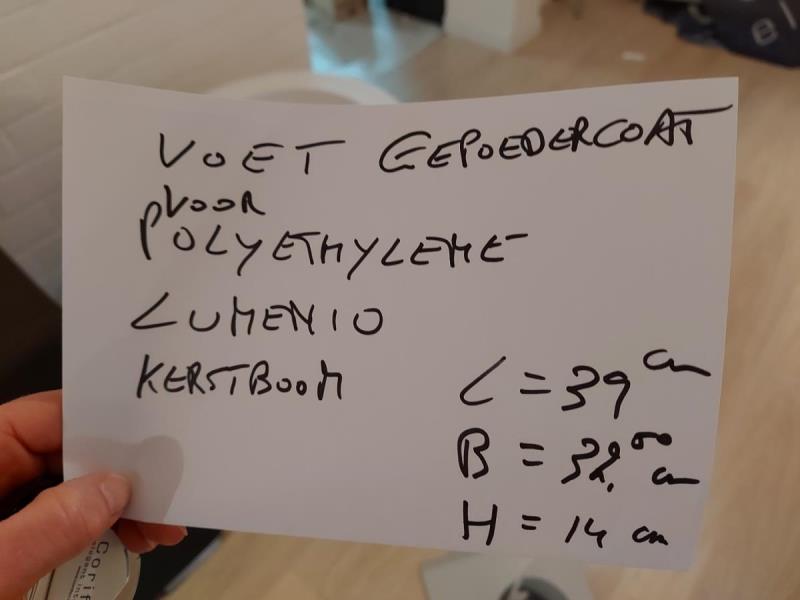 VOET GEPOEDERCOAT
VOOR
POLYETHYLENE
LUMENIO
KERSTBOOM
L = 39 cm
B = 38,00 cm
H = 14 cm
Corif